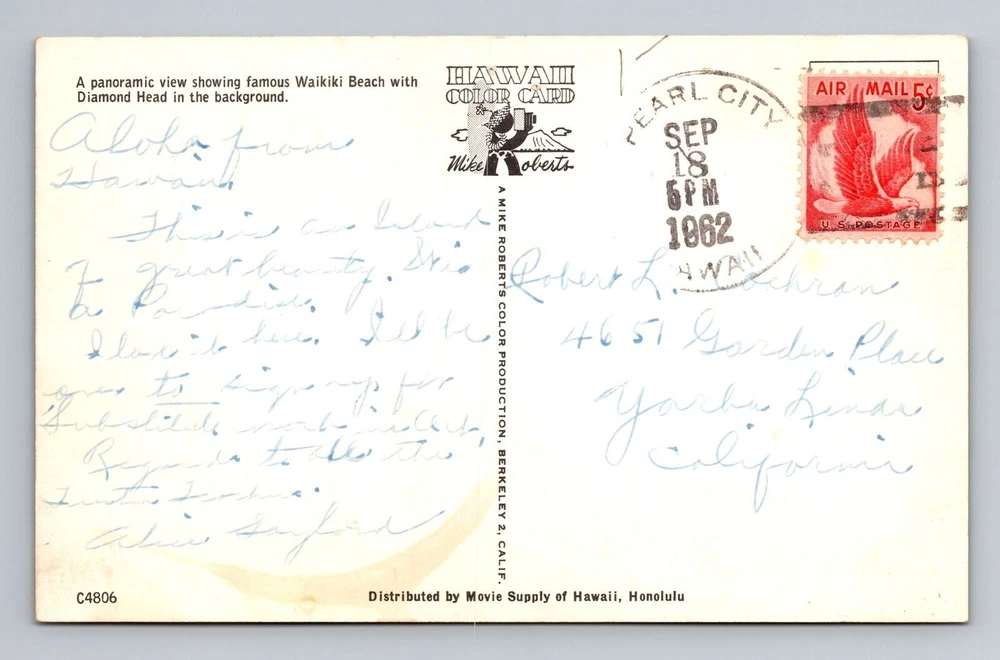 A panoramic view showing famous Waikiki Beach with
Diamond Head in the background.
HAWAII
COLOR CARD
Mike Roberts
PEARL CITY
SEP
18
5 PM
1962
HAWAII
AIR MAIL 5¢
U.S. POSTAGE
Aloha from
Hawaii.
This is an Island
of great beauty.
a
I love it here. I'll be
to sign up for
Substitute work in Oct.
Regards to all the
Tustin
Alice
A MIKE ROBERTS COLOR PRODUCTION, BERKELEY 2, CALIF.
Robert L. Cochran
4651 Garden Place
Yorba Linda
California
C4806
Distributed by Movie Supply of Hawaii, Honolulu